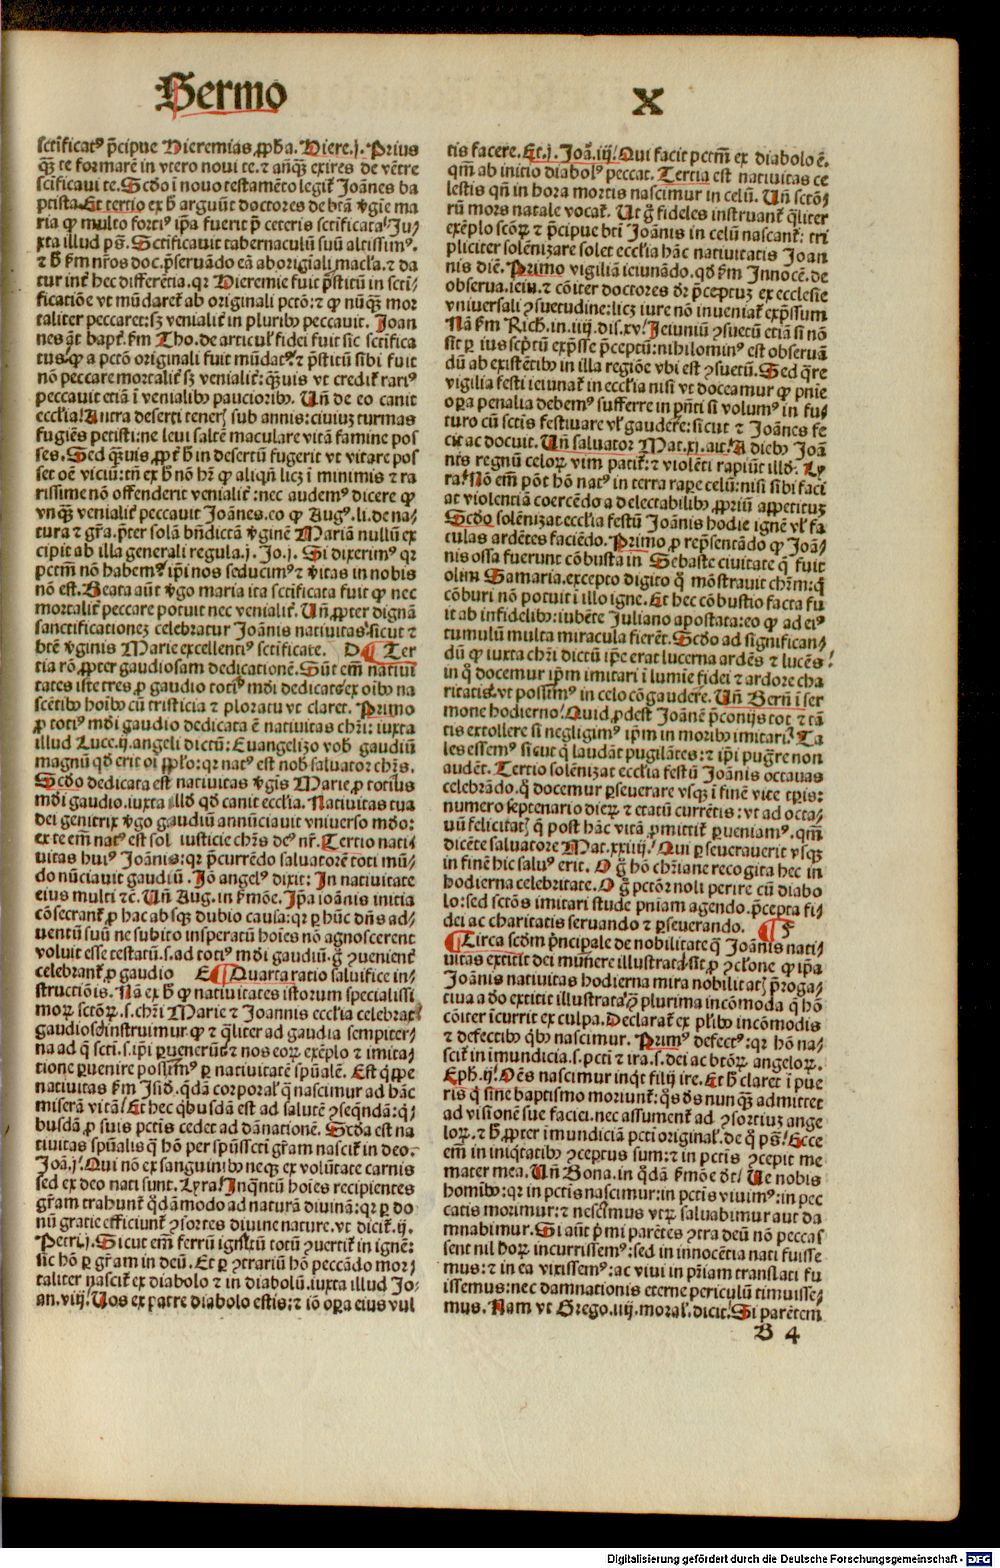 Sermo
X
sctificatꝰ p̄cipue Hieremias, ꝓpħa. Hiere.j. Prius
qᷓꝫ te formarē in vtero noui te. ⁊ an̄qᷓꝫ exires de vētre
scificaui te. Scďo ī nouo testamēto legiť Joānes ba
ptista. Et tertio ex ħ arguūt doctores de btā ꝟgīe ma
ria ꝙ multo fortiꝰ ip̄a fuerit p̄ ceteris sctificata. Ju⸗
xta illud ps̄. Sctificauit tabernaculū suū altissimꝰ.
⁊ ħ ẜm nr̄os doc. p̄seruādo eā ab origīali macľa. ⁊ da
tur inť hec differētia. qr Hieremie fuit p̄stitū in scti⸗
ficatiōe vt mūdareť ab originali pctō: ⁊ ꝙ nūqꝫ mor
taliter peccaret: sꝫ venialiť in pluribꝰ peccauit. Joan
nes aūt bapť. ẜm Tho. de articuľ fidei fuit sic sctifica
tus, ꝙ a pctō originali fuit mūdatꝰ. ⁊ p̄stitū sibi fuit
nō peccare mortaliť: sꝫ venialiť: qᷓꝫuis vt crediť rariꝰ
peccauit etiā ī venialibꝰ paucioribꝰ. Un̄ de eo canit
ecclīa. Antra deserti teneris sub annis: ciuiuꝫ turmas
fugiēs petisti: ne leui saltē maculare vitā famine pos
ses. Sed qᷓꝫuis ꝓpť ħ in desertū fugerit vt vitare pos
set oē viciū: tn̄ ex ħ nō hꝫ ꝙ aliqn̄ licꝫ ī minimis ⁊ ra
rissime nō offenderit venialiť: nec audemꝰ dicere ꝙ
vnqᷓꝫ venialiť peccauit Joānes. eo ꝙ Augꝰ. li. de na⸗
tura ⁊ grā. p̄ter solā bn̄dictā ꝟginē Mariā nullū ex
cipit ab illa generali regula. j. Jo. j. Si dixerimꝰ qr
pctm̄ nō habemꝰ. ip̄i nos seducimꝰ ⁊ ꝟitas in nobis
nō est. Beata aūt ꝟgo maria ita sctificata fuit ꝙ nec
mortaliť peccare potuit nec venialiť. Un̄ ꝓpter dignā
sanctificationeꝫ celebratur Joānis natiuitas. sicut ⁊
btē ꝟginis Marie excellentiꝰ sctificate. D ¶ Ter
tia rō. ꝓpter gaudiosam dedicationē. Sūt em̄ natiui
tates iste tres ꝓ gaudio totiꝰ mūdi dedicate. ex oībꝰ na
scētibꝰ hoībꝰ cū tristicia ⁊ ploratu vt claret. Primo
ꝓ totiꝰ mūdi gaudio dedicata ē natiuitas chr̄i: iuxta
illud Luce.ij. angeli dictū: Euangelizo vob gaudiū
magnū qď erit oī pp̄lo: qr natꝰ est nob saluator chr̄s.
Scďo dedicata est natiuitas ꝟgīs Marie ꝓ totius
mūdi gaudio. iuxta illď qď canit ecclīa. Natiuitas tua
dei genitrix ꝟgo gaudiū annūciauit vniuerso mūdo:
ex te em̄ natꝰ est sol iusticie chr̄s deꝰ nr̄. Tertio nati⸗
uitas huiꝰ Joānis: qr p̄currēdo saluatorē toti mū⸗
do nūciauit gaudiū. Jō angelꝰ dixit: In natiuitate
eius multi ⁊c̄. Un̄ Aug. in ẜmōe. Ip̄a ioānis initia
cōsecranť ꝓ hac absqꝫ dubio causa: qr ꝑ hūc dn̄s ad⸗
uentū suū ne subito insperatū hoīes nō agnoscerent
voluit esse testatū. s. ad totiꝰ mūdi gaudiū. ḡ ꝯuenienť
celebranť ꝓ gaudio E ¶ Quarta ratio saluifice in⸗
structiōis. Nā ex ħ ꝙ natiuitates istorum specialissi
moꝝ sctōꝝ. s. chr̄i Marie ⁊ Joannis ecclīa celebrat
gaudiose, instruimur ꝙ ⁊ qᷓliter ad gaudia sempiter⸗
na ad q̄ scti. s. ip̄i ꝑuenerūt ⁊ nos eoꝝ exēplo ⁊ imita⸗
tione ꝑuenire possimꝰ ꝑ natiuitatē spūalē. Est qͥppe
natiuitas ẜm Isiď. qᷓdā corporaľ q̄ nascimur ad hāc
miserā vitā. Et hec qͥbusdā est ad salutē ꝯseqn̄dā: qͥ⸗
busdā ꝓ suis pctīs cedet ad dānationē. Scďa est na
tiuitas spūalis q̄ hō per spūssctī grām nasciť in deo.
Joā.j. Qui nō ex sanguinibꝰ neqꝫ ex volūtate carnis
sed ex deo nati sunt. Lyra. Inqͣntū hoīes recipientes
grām trahunť qᷓdāmodo ad naturā diuinā: qr ꝑ do
nū gratie efficiunť ꝯsortes diuine nature. vt diciť. ij.
Petri.j. Sicut em̄ ferrū ignitū totū ꝯuertiť in ignē:
sic hō ꝑ grām in deū. Et ꝑ ꝯtrariū hō peccādo mor⸗
taliter nasciť ex diabolo ⁊ in diabolū. iuxta illud Jo⸗
an.viij. Uos ex patre diabolo estis: ⁊ iō oꝑa eius vul
tis facere. Et.j. Joā.iij. Qui facit pctm̄ ex diabolo ē.
qm̄ ab initio diabolꝰ peccat. Tertia est natiuitas ce
lestis qn̄ in hora mortis nascimur in celū. Un̄ sctō⸗
rū mors natale vocať. Ut ḡ fideles instruanť qᷓliter
exēplo sctōꝝ ⁊ p̄cipue btī Joānis in celū nascanť: tri
pliciter solēnizare solet ecclīa hāc natiuitatis Joan
nis diē. Primo vigiliā ieiunādo. qď ẜm Innocē. de
obserua. ieiu. ⁊ cōiter doctores dr̄ p̄ceptuꝫ ex ecclesie
vniuersali ꝯsuetudine: licꝫ iure nō inueniať exp̄ssum
Nā ẜm Rich. in.iiij. dis.xv. Jeiuniū ꝯsuetū etiā si nō
sit ꝑ ius scp̄tū exp̄sse p̄ceptū: nihilominꝰ est obseruā
dū ab existētibꝰ in illa regiōe vbi est ꝯsuetū. Sed qͣre
vigilia festi ieiunať in ecclīa nisi vt doceamur ꝙ pn̄ie
oꝑa penalia debemꝰ sufferre in pn̄ti si volumꝰ in fu⸗
turo cū sctīs festiuare vľ gaudere: sicut ⁊ Joānes fe
cit ac docuit. Un̄ saluator Mat.xj. ait. A diebꝰ Joā
nis regnū celoꝝ vim patiť: ⁊ violēti rapiūt illď. Ly
ra. Nō em̄ pōt hō natꝰ in terra raꝑe celū: nisi sibi faci
at violentiā coercēdo a delectabilibꝰ ꝓpriū appetituꝫ
Scďo solēnizat ecclīa festū Joānis hodie ignē vľ fa
culas ardētes faciēdo. Primo ꝓ rep̄sentādo ꝙ Joā⸗
nis ossa fuerunt cōbusta in Sebaste ciuitate q̄ fuit
olim Samaria. excepto digito q̄ mōstrauit chr̄m: qͥ
cōburi nō potuit ī illo igne. Et hec cōbustio facta fu
it ab infidelibꝰ: iubēte Juliano apostata: eo ꝙ ad eiꝰ
tumulū multa miracula fierēt. Scďo ad significan⸗
dū ꝙ iuxta chr̄i dictū ip̄e erat lucerna ardēs ⁊ lucēs.
in q̄ docemur ip̄m imitari ī lumie fidei ⁊ ardore cha
ritatis. vt possimꝰ in celo cōgaudere. Un̄ Bern̄ ī ser
mone hodierno. Quid ꝓdest Joānē p̄conijs tot ⁊ tā
tis extollere si negligimꝰ ip̄m in moribꝰ imitari. Ta
les essemꝰ sicut q̄ laudāt pugilātes: ⁊ ip̄i pugͣre non
audēt. Tertio solēnizat ecclīa festū Joānis octauas
celebrādo. q̄ docemur ꝑseuerare vsqꝫ ī finē vite tpr̄is:
numero septenario dieꝝ ⁊ etatū currētis: vt ad octa⸗
uū felicitatꝭ q̄ post hāc vitā ꝓmittiť ꝑueniamꝰ. qm̄
dicēte saluatore Mat.xxiiij. Qui ꝑseuerauerit vsqꝫ
in finē hic saluꝰ erit. O ḡ hō chr̄iane recogita hec in
hodierna celebritate. O ḡ pctōr noli perire cū diabo
lo: sed sctōs imitari stude pn̄iam agendo. p̄cepta fi⸗
dei ac charitatis seruando ⁊ ꝑseuerando. ¶ F
¶ Circa scďm p̄ncipale de nobilitate q̄ Joānis nati⸗
uitas extitit dei munere illustrata. sit ꝓ ꝯclone ꝙ ip̄a
Joānis natiuitas hodierna mira nobilitatꝭ p̄roga⸗
tiua a deo extitit illustrata. ꝙ plurima incōmoda q̄ hō
cōiter īcurrit ex culpa. Declarať ex pľibꝰ incōmodis
⁊ defectibꝰ qͥbꝰ nascimur. Primꝰ defectꝰ: qr hō na⸗
sciť in imundicia. s. pctī ⁊ ira. s. dei ac btōꝝ angeloꝝ.
Eph.ij. Oēs nascimur inqͥt filij ire. Et ħ claret ī pue
ris q̄ sine baptismo moriunť: qͦs ds̄ nunqᷓꝫ admittet
ad visionē sue faciei. nec assumenť ad ꝯsortiuꝫ ange
loꝝ. ⁊ ħ ꝓpter īmundiciā pctī originaľ. de q̄ ps̄. Ecce
em̄ in iniqͥtatibꝰ ꝯceptus sum: ⁊ in pctīs ꝯcepit me
mater mea. Un̄ Bona. in qᷓdā ẜmōe dt̄. Ue nobis
hominibꝰ: qr in pctīs nascimur: in pctīs viuimꝰ: in pec
catis morimur: ⁊ nescimus vtꝝ saluabimur aut da
mnabimur. Si aūt p̄mi parētes ꝯtra deū nō peccas
sent nil hoꝝ incurrissemꝰ: sed in innocētia nati fuisse
mus: ⁊ in ea vixissemꝰ: ac viui in pr̄iam translati fu
issemus: nec damnationis eterne periculū timuisse⸗
mus. Nam vt Grego.iiij. moraľ. dicit. Si parētem
B 4
Digitalisierung gefördert durch die Deutsche Forschungsgemeinschaft - DFG